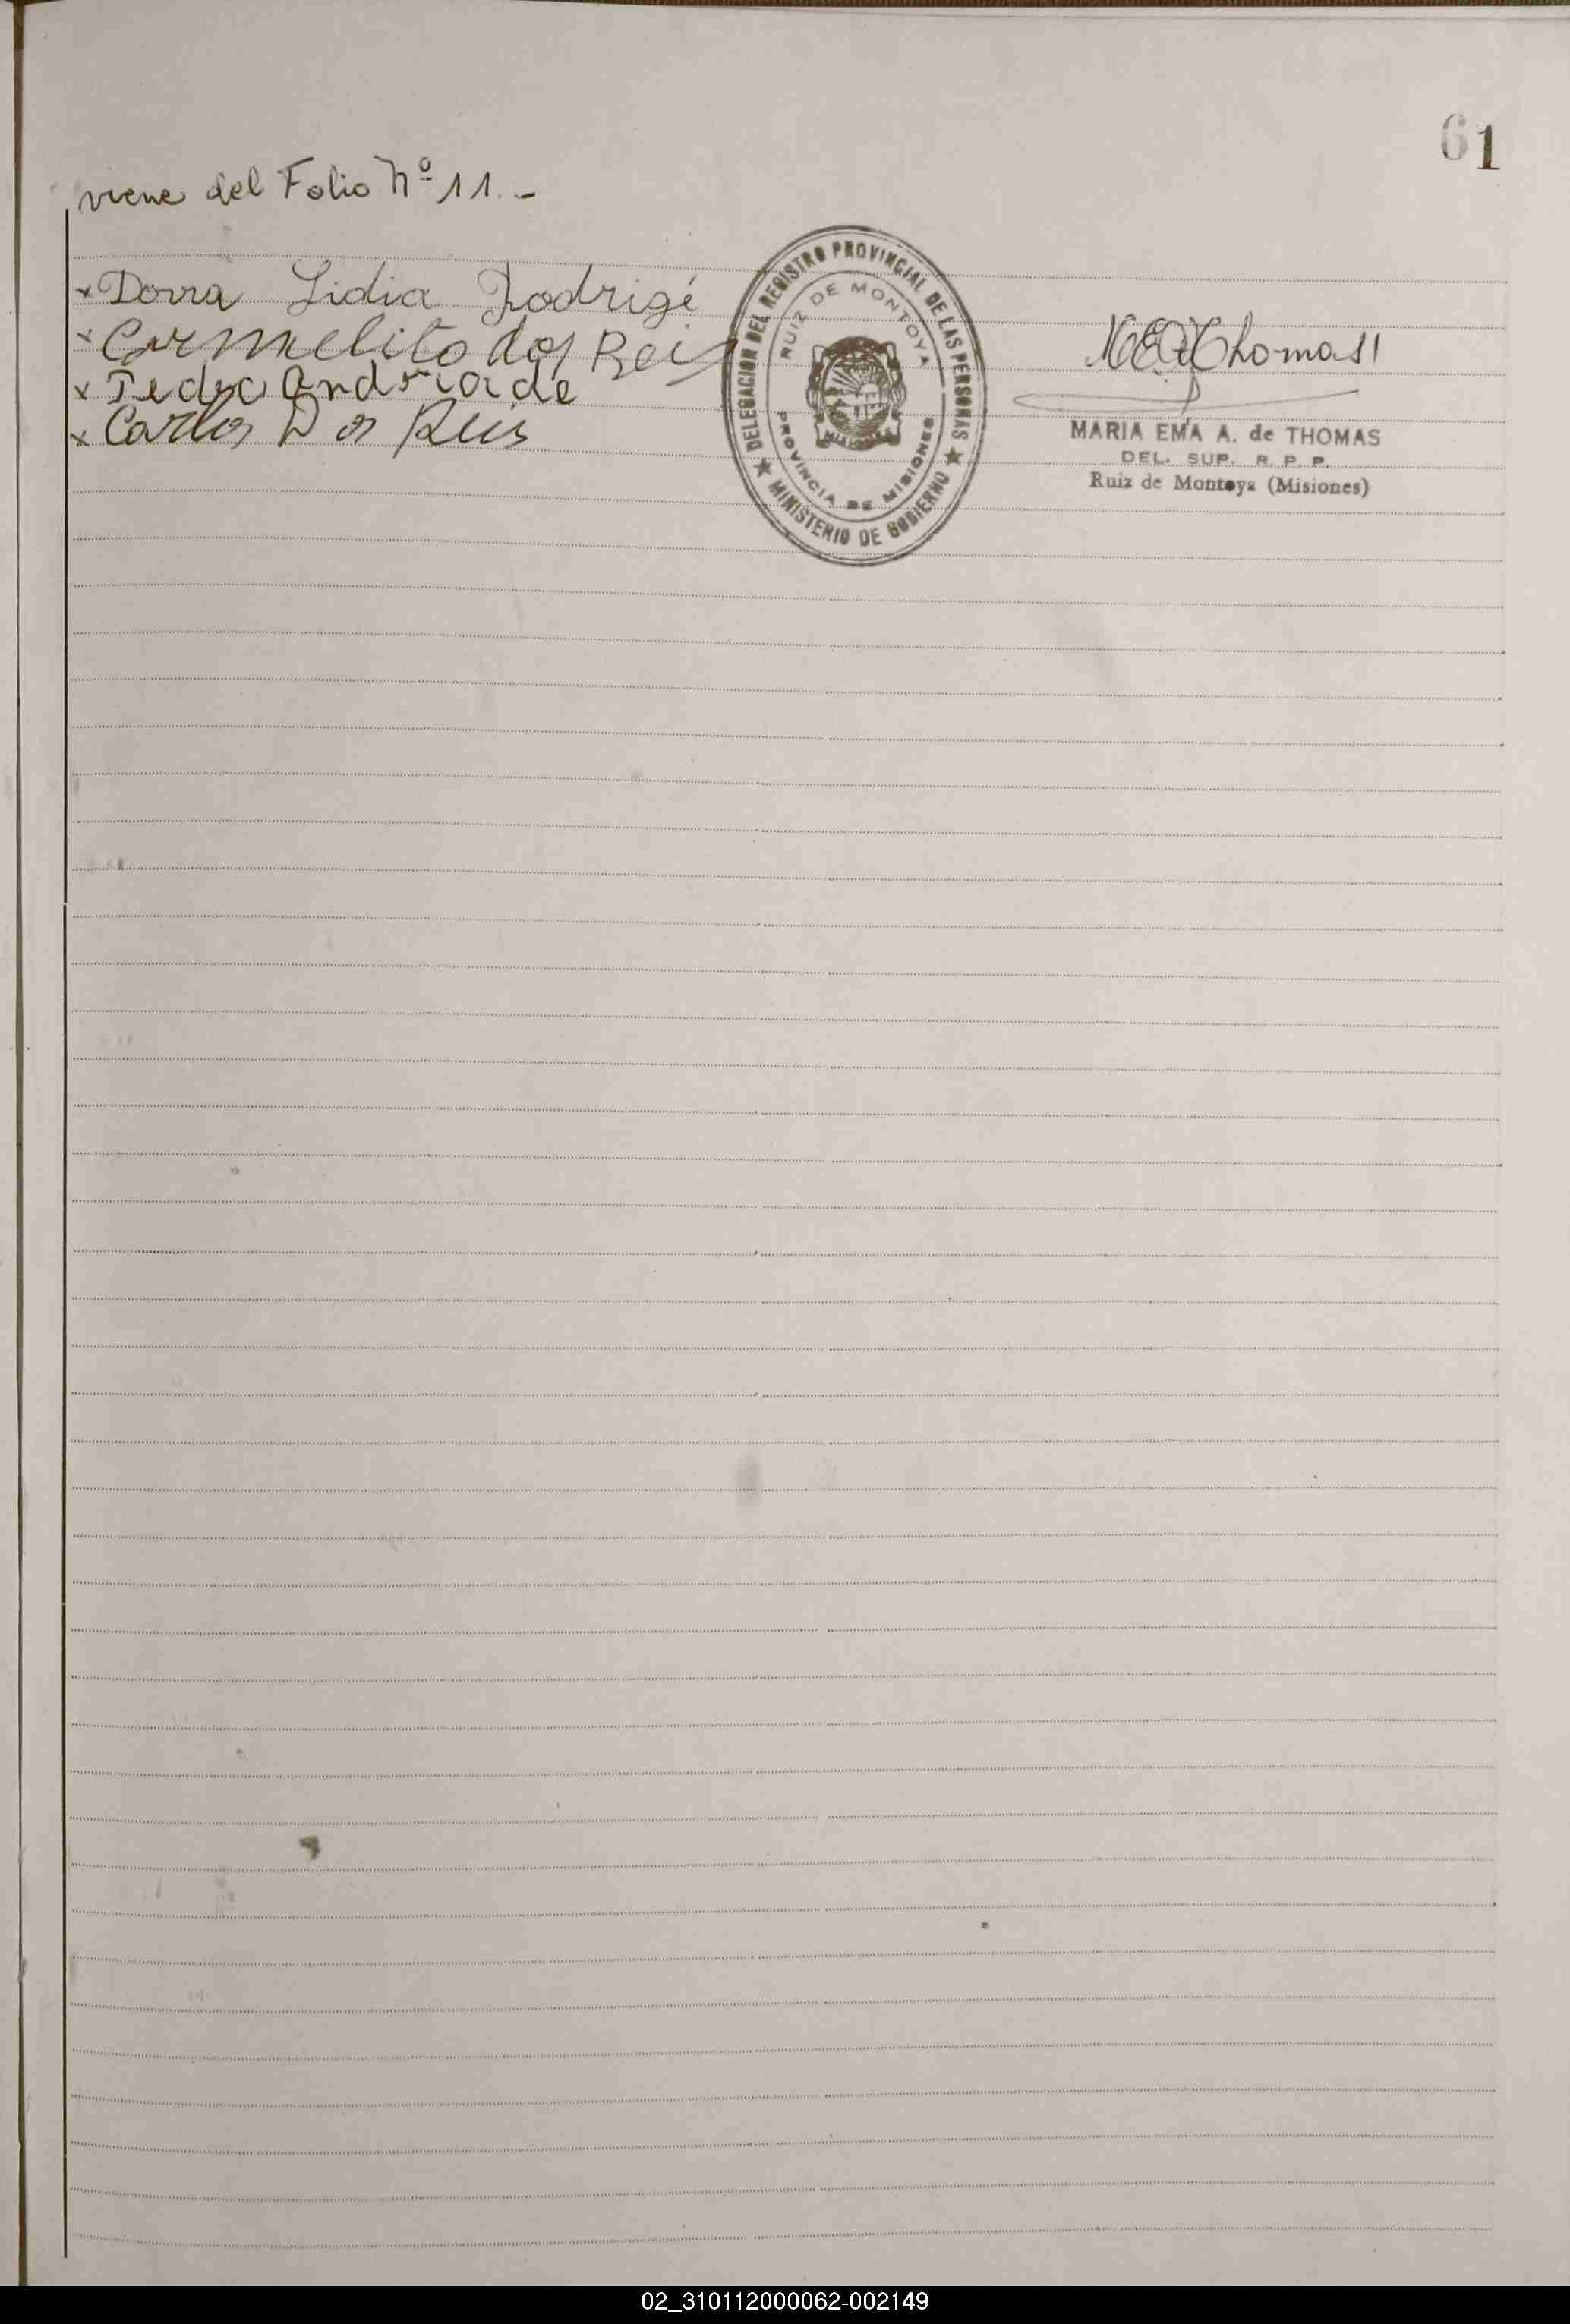 61
viene del Folio Nº 11.-
x Dorra Lidia Rodrigé
x Carmelito dos Reis
x Pedro andraide
x Carlos Dos Reis
DELEGACION DEL REGISTRO PROVINCIAL DE LAS PERSONAS
RUIZ DE MONTOYA
MISIONES
PROVINCIA DE MISIONES
★ MINISTERIO DE GOBIERNO ★
Thomas
MARIA EMA A. de THOMAS
DEL. SUP. R. P. P.
Ruiz de Montoya (Misiones)
02_310112000062-002149